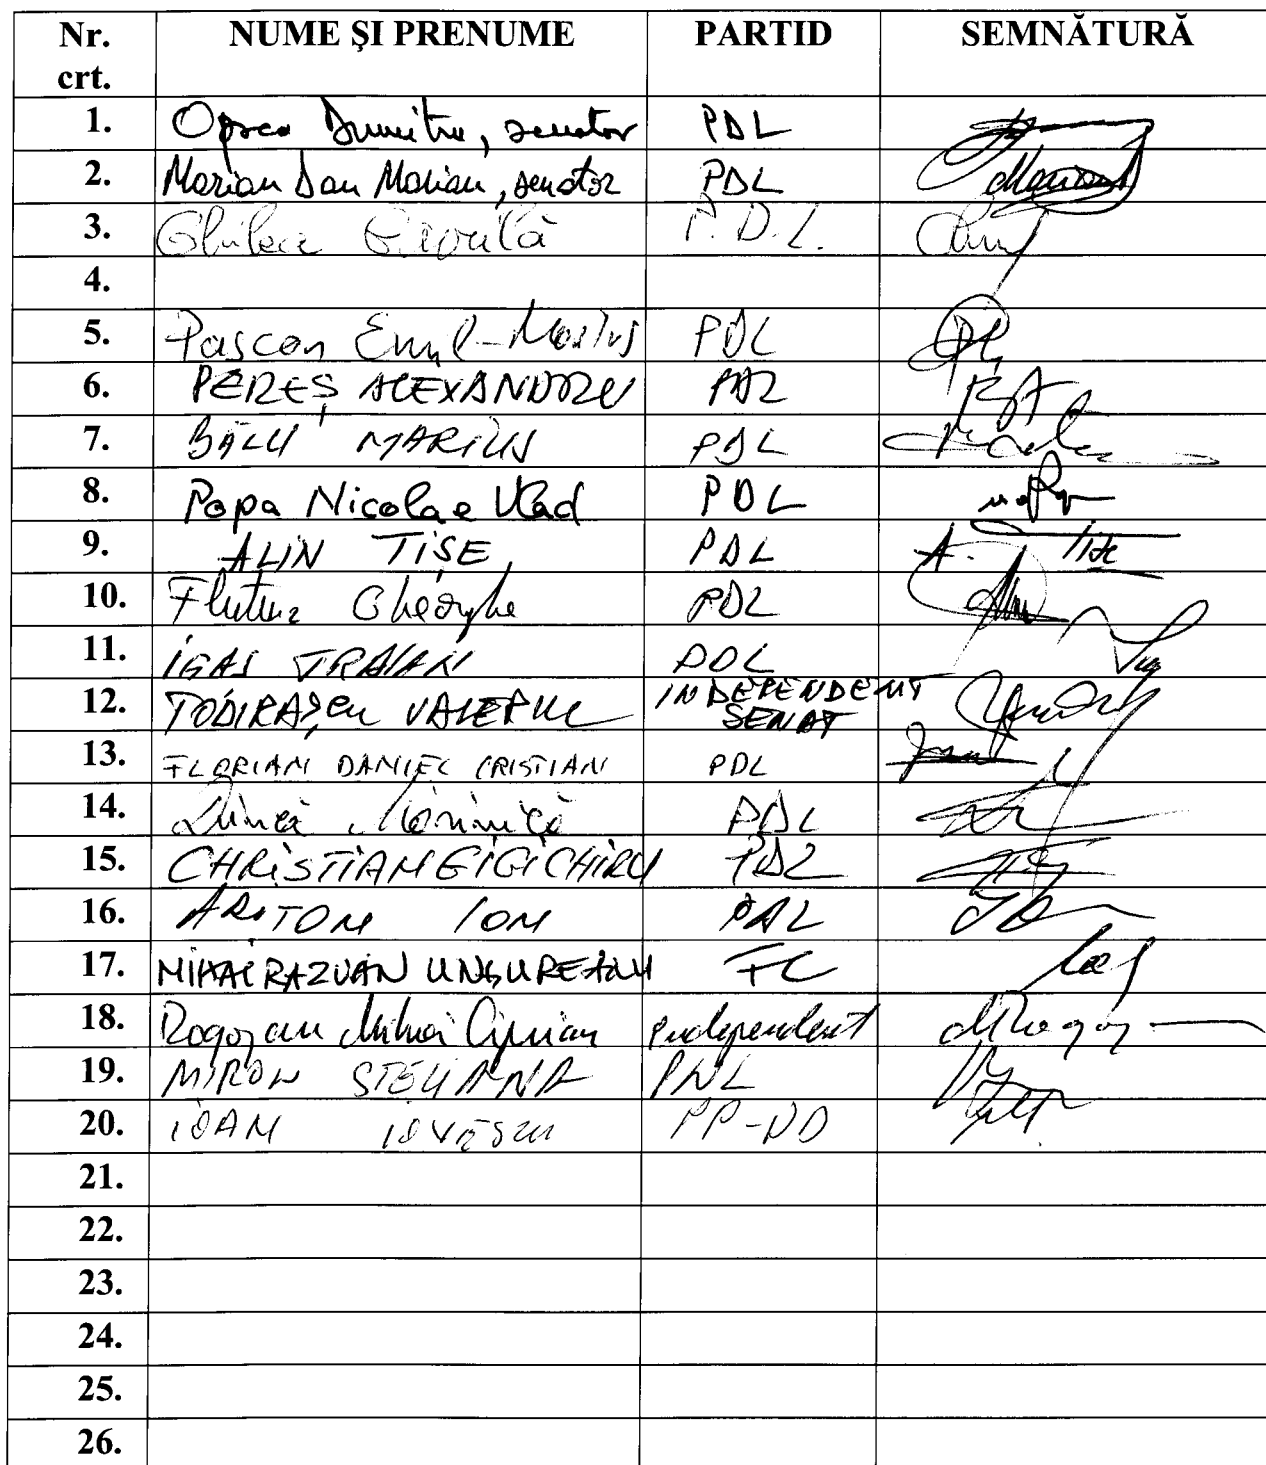 Nr. crt. NUME ŞI PRENUME PARTID SEMNĂTURĂ
1. Oprea Dumitru, senator PDL
2. Marian Dan Marian, senator PDL
3. Ghilea Găvrilă P.D.L.
4.
5. Pascan Emil-Marius PDL
6. PEREŞ ALEXANDRU PDL
7. BĂLU MARIUS PDL
8. Popa Nicolae Vlad PDL
9. ALIN TIŞE PDL A. Tișe
10. Flutur Gheorghe PDL
11. IGAS TRAIAN PDL
12. TODIRAŞCU VALERIU INDEPENDENT SENAT
13. FLORIAN DANIEL CRISTIAN PDL
14. Dincă Mărinică PDL
15. CHRISTIAN GIGI CHIRU PDL
16. ARITON ION PDL
17. MIHAI RAZVAN UNGUREANU FC
18. Rogojan Mihai Ciprian Independent
19. MIRON STELIANA PNL
20. IOAN IOVESCU PP-DD
21.
22.
23.
24.
25.
26.